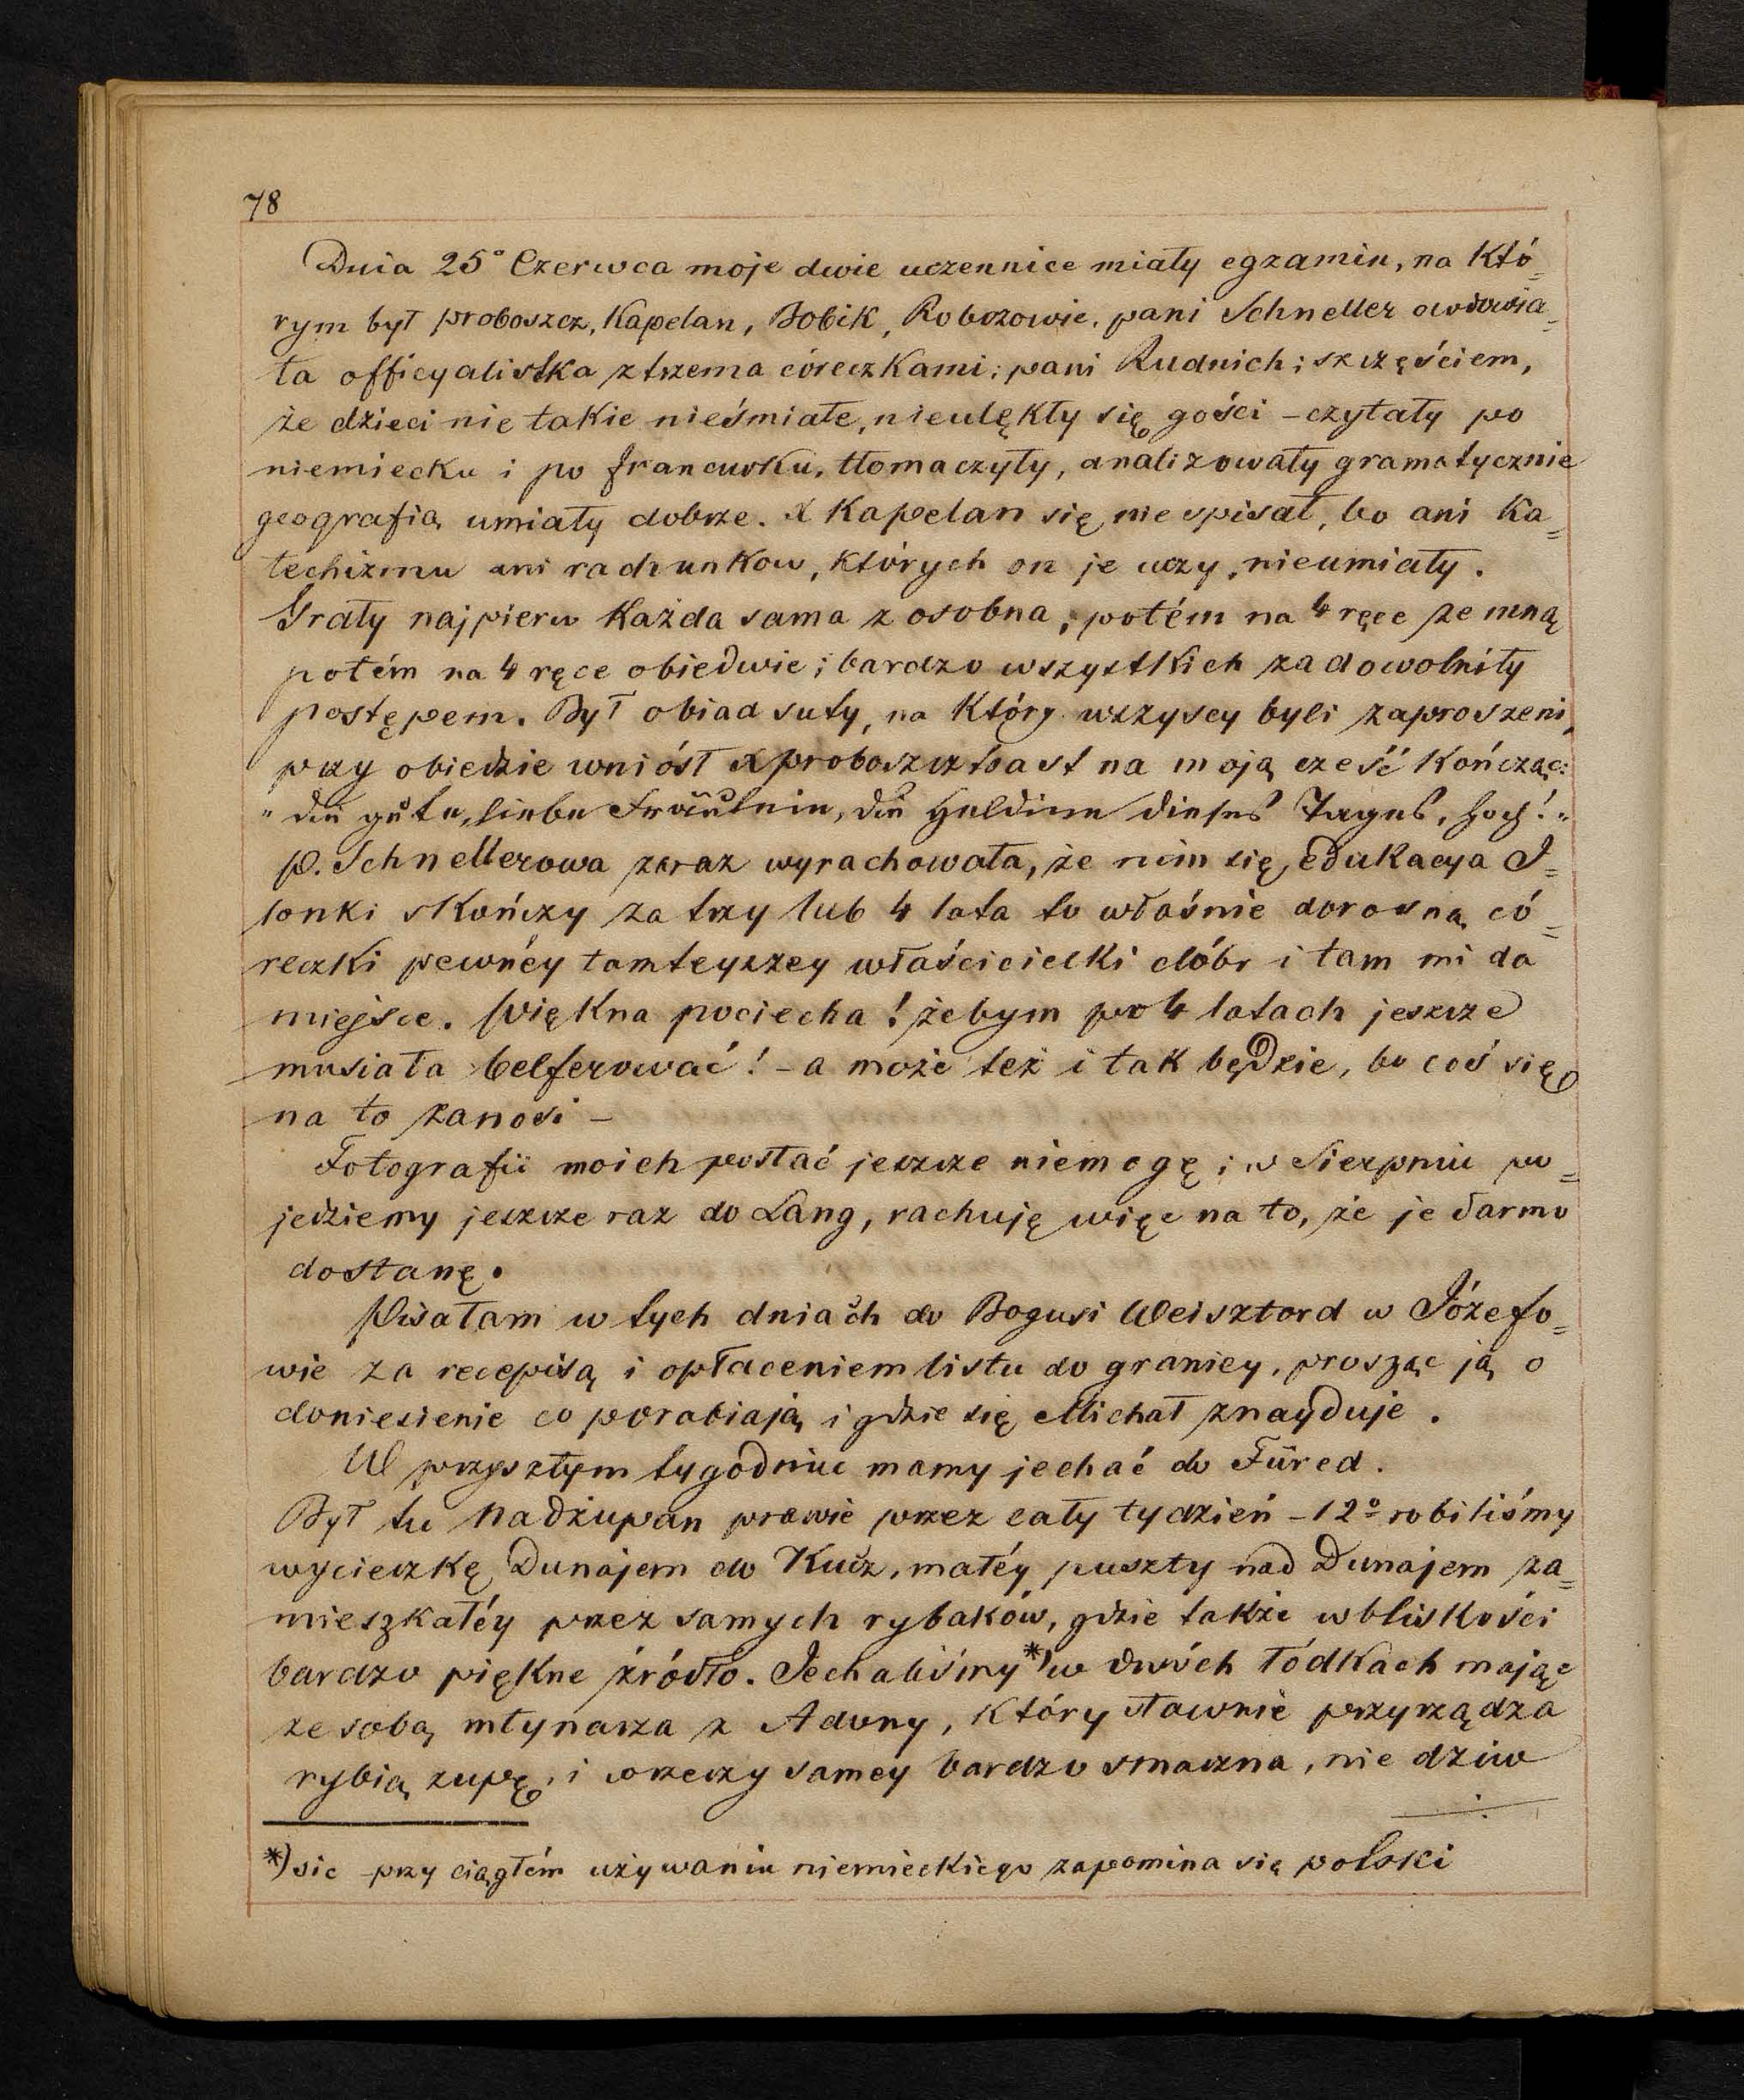 78
Dnia 25° Czerwca moje dwie uczennice miały egzamin, na któ=
rym był proboszcz, Kapelan, Bobik, Robozowie, pani Schneller owdowia=
ła officyalistka z trzema córeczkami; pani Rudnich; szczęściem,
że dzieci nie takie nieśmiałe, nieulękły się gości – czytały po
niemiecku i po francusku, tłomaczyły, analizowały gramatycznie
geografią umiały dobrze. X Kapelan się nie spisał, bo ani Ka=
techizmu ani rachunkow, których on je uczy, nieumiały.
Grały najpierw każda sama z osobna, potém na 4 ręce ze mną
potém na 4 ręce obiedwie; bardzo wszystkich zadowolniły
postępem. Był obiad suty, na który wszyscy byli zaproszeni,
przy obiedzie wniósł X proboszcz toast na moją cześć kończąc:
"die gute, liebe Fräulein, die Heldinn dieses Tages, hoch!"
p. Schnellerowa zaraz wyrachowała, że nim się edukacya I=
lonki skończy za trzy lub 4 lata to właśnie dorosną có=
reczki pewnéy tamteyszey właścicielki dóbr i tam mi da
miejsce. Piękna pociecha! żebym po 4 latach jeszcze
musiała belferować! – a może też i tak będzie, bo coś się
na to zanosi –
Fotografii moich posłać jeszcze niemogę; w Sierpniu po=
jedziemy jeszcze raz do Lang, rachuję więc na to, że je darmo
dostanę.
Pisałam w tych dniach do Bogusi Weisztord w Józefo=
wie za recepisą i opłaceniem listu do granicy, prosząc ją o
doniesienie co porabiają i gdzie się Michał znayduje.
W przyszłym tygodniu mamy jechać do Füred.
Był tu nadżupan prawie przez cały tydzień – 12° robiliśmy
wycieczkę Dunajem do Kucz, małéy puszty nad Dunajem za=
mieszkałéy przez samych rybaków, gdzie także w bliskości
bardzo piękne źródło. Jechaliśmy *) w dwóch łódkach mając
ze sobą młynarza z Adony, który sławnie przyrządza
rybią zupę, i w rzeczy samey bardzo smaczna, nie dziw
*) sic przy ciągłém używaniu niemieckiego zapomina się polski